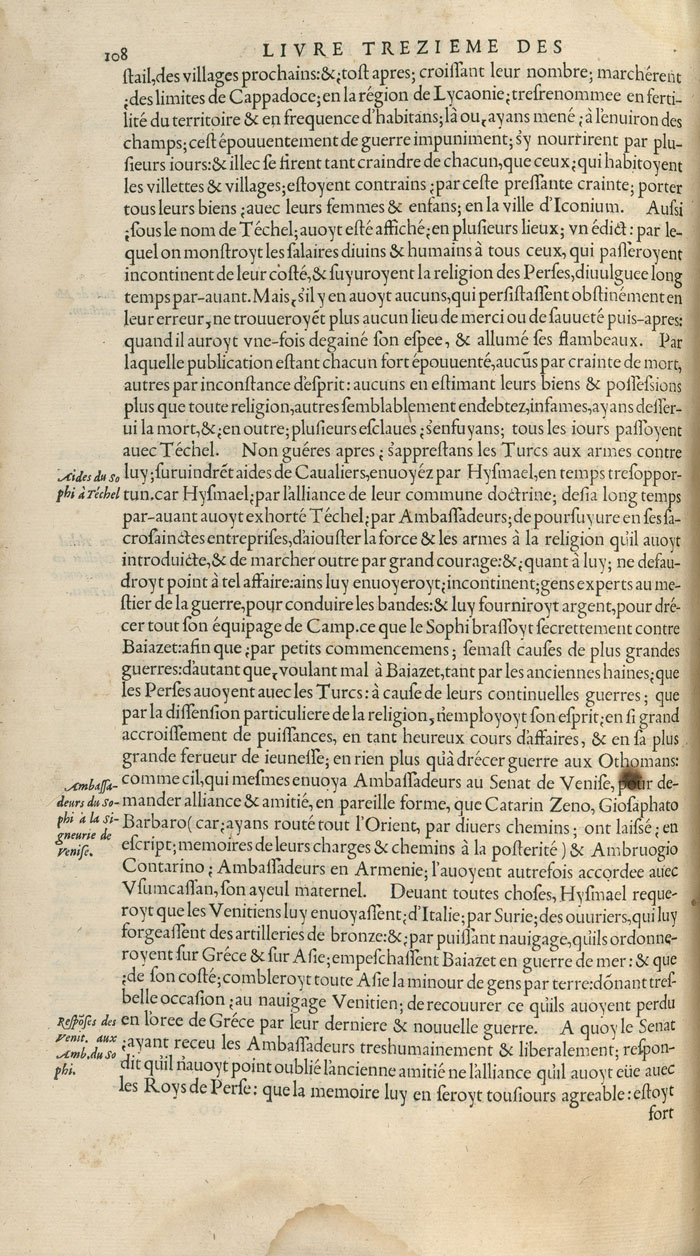 108
LIVRE TREZIEME DES
ſtail,des villages prochains:&¿toſt apres; croiſſant leur nombre; marchérent
¿des limites de Cappadoce;en la région de Lycaonie¿treſrenommee en ferti-
lité du territoire & en frequence d'habitans;là ou¿ayans mené ¿ à l'enuiron des
champs;ceſt épouuentement de guerre impuniment; s'y nourrirent par plu-
ſieurs iours:& illec ſe firent tant craindre de chacun,que ceux¿qui habitoyent
les villettes & villages;eſtoyent contrains ¿par ceſte preſſante crainte; porter
tous leurs biens ¿auec leurs femmes & enfans; en la ville d'Iconium. Auſsi
¿ſous le nom de Téchel;auoyt eſté affiché¿en pluſieurs lieux; vn édict: par le-
quel on monſtroyt les ſalaires diuins & humains à tous ceux, qui paſſeroyent
incontinent de leur coſté,& ſuyuroyent la religion des Perſes,diuulguee long
temps par-auant. Mais¿s'il y en auoyt aucuns,qui perſiſtaſſent obſtinément en
leur erreur,ne trouueroyēt plus aucun lieu de merci ou de ſauueté puis-apres:
quand il auroyt vne-fois degainé ſon eſpee, & allumé ſes flambeaux. Par
laquelle publication eſtant chacun fort épouuenté,aucūs par crainte de mort,
autres par inconſtance d'eſprit: aucuns en eſtimant leurs biens & poſſeſsions
plus que toute religion,autres ſemblablement endebtez,infames,ayans deſſer-
ui la mort,&¿en outre; pluſieurs eſclaues ¿s'enfuyans; tous les iours paſſoyent
auec Téchel. Non guéres apres ¿ s'appreſtans les Turcs aux armes contre
Aides du So
phi à Téchel
luy;ſuruindrēt aides de Caualiers,enuoyéz par Hyſmael,en temps treſoppor-
tun.car Hyſmael¿par l'alliance de leur commune doctrine; deſia long temps
par-auant auoyt exhorté Téchel¿par Ambaſſadeurs;de pourſuyure en ſes ſa-
croſainctes entrepriſes,d'aiouſter la force & les armes à la religion qu'il auoyt
introduicte,& de marcher outre par grand courage:&¿quant à luy; ne defau-
droyt point à tel affaire:ains luy enuoyeroyt¿incontinent;gens experts au me-
ſtier de la guerre,pour conduire les bandes:& luy fourniroyt argent,pour dré-
cer tout ſon équipage de Camp.ce que le Sophi braſſoyt ſecrettement contre
Baiazet:afin que ¿par petits commencemens ; ſemaſt cauſes de plus grandes
guerres:d'autant que¿voulant mal à Baiazet,tant par les anciennes haines¿que
les Perſes auoyent auec les Turcs: à cauſe de leurs continuelles guerres ; que
par la diſſenſion particuliere de la religion,n'employoyt ſon eſprit¿en ſi grand
accroiſſement de puiſſances, en tant heureux cours d'affaires, & en ſa plus
grande ferueur de ieuneſſe; en rien plus qu'à drécer guerre aux Othomans:
Ambaſſa-
deurs du So-
phi à la Si-
gneurie de
Veniſe.
comme cil,qui meſmes enuoya Ambaſſadeurs au Senat de Veniſe, pour de-
mander alliance & amitié, en pareille forme, que Catarin Zeno, Gioſaphato
Barbaro( car¿ayans routé tout l'Orient, par diuers chemins ; ont laiſſé ¿ en
eſcript; memoires de leurs charges & chemins à la poſterité ) & Ambruogio
Contarino ¿ Ambaſſadeurs en Armenie; l'auoyent autrefois accordee auec
Vſumcaſſan,ſon ayeul maternel. Deuant toutes choſes, Hyſmael reque-
royt que les Venitiens luy enuoyaſſent¿d'Italie;par Surie;des ouuriers,qui luy
forgeaſſent des artilleries de bronze:&¿par puiſſant nauigage,qu'ils ordonne-
royent ſur Gréce & ſur Aſie;empeſchaſſent Baiazet en guerre de mer: & que
¿de ſon coſté;combleroyt toute Aſie la minour de gens par terre:dōnant treſ-
belle occaſion ¿au nauigage Venitien; de recouurer ce qu'ils auoyent perdu
Reſpōſes des
Venit. aux
Amb.du So
phi.
en l'oree de Gréce par leur derniere & nouuelle guerre. A quoy le Senat
¿ayant receu les Ambaſſadeurs treshumainement & liberalement; reſpon-
dit qu'il n'auoyt point oublié l'ancienne amitié ne l'alliance qu'il auoyt eüe auec
les Roys de Perſe: que la memoire luy en ſeroyt touſiours agreable: eſtoyt
fort